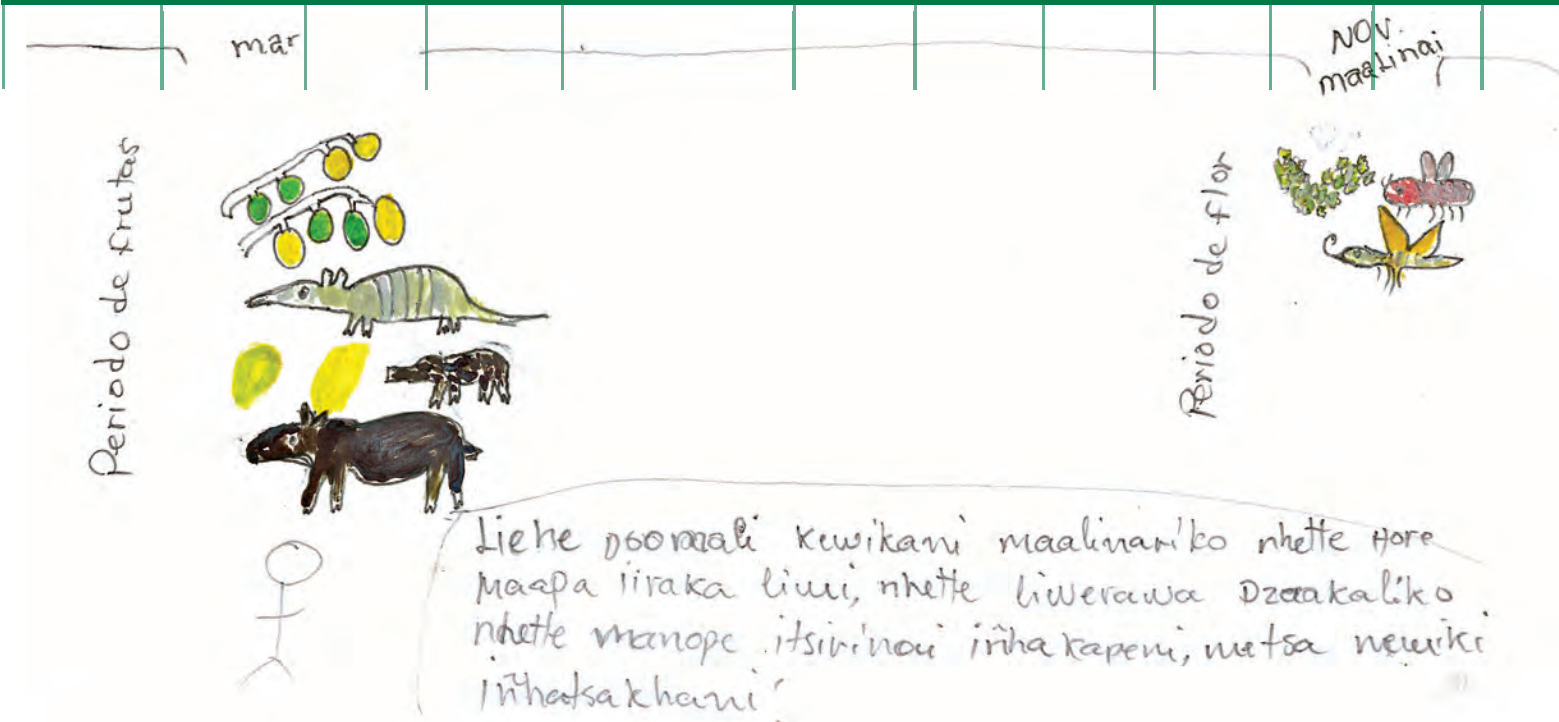 mar
NOV.
maalinai
Periodo de frutas
Periodo de flor
Liehe Doomali kewikani maalinariko nhette Hore
maapa iiraka liwi, nhette liwerawa Dzaakaliko
nhette manope itsirinai iñha kapeni, metsa newiki
iñhatsakhani